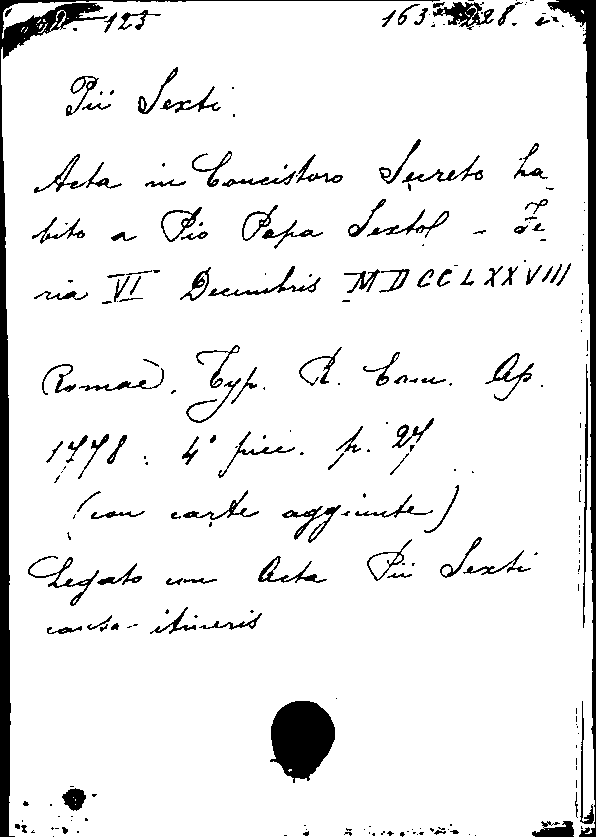 32. 123 163. 228.
Pii Sexti.
Acta in Concistoro Secreto ha-
bito a Pio Papa Sexto - Fe-
ria VI Decembris MDCCLXXVIII
Romae, Typ. R. Cam. Ap.
1778. 4° picc. p. 27
(con carte aggiunte)
Legato con Acta Pii Sexti
causa itineris